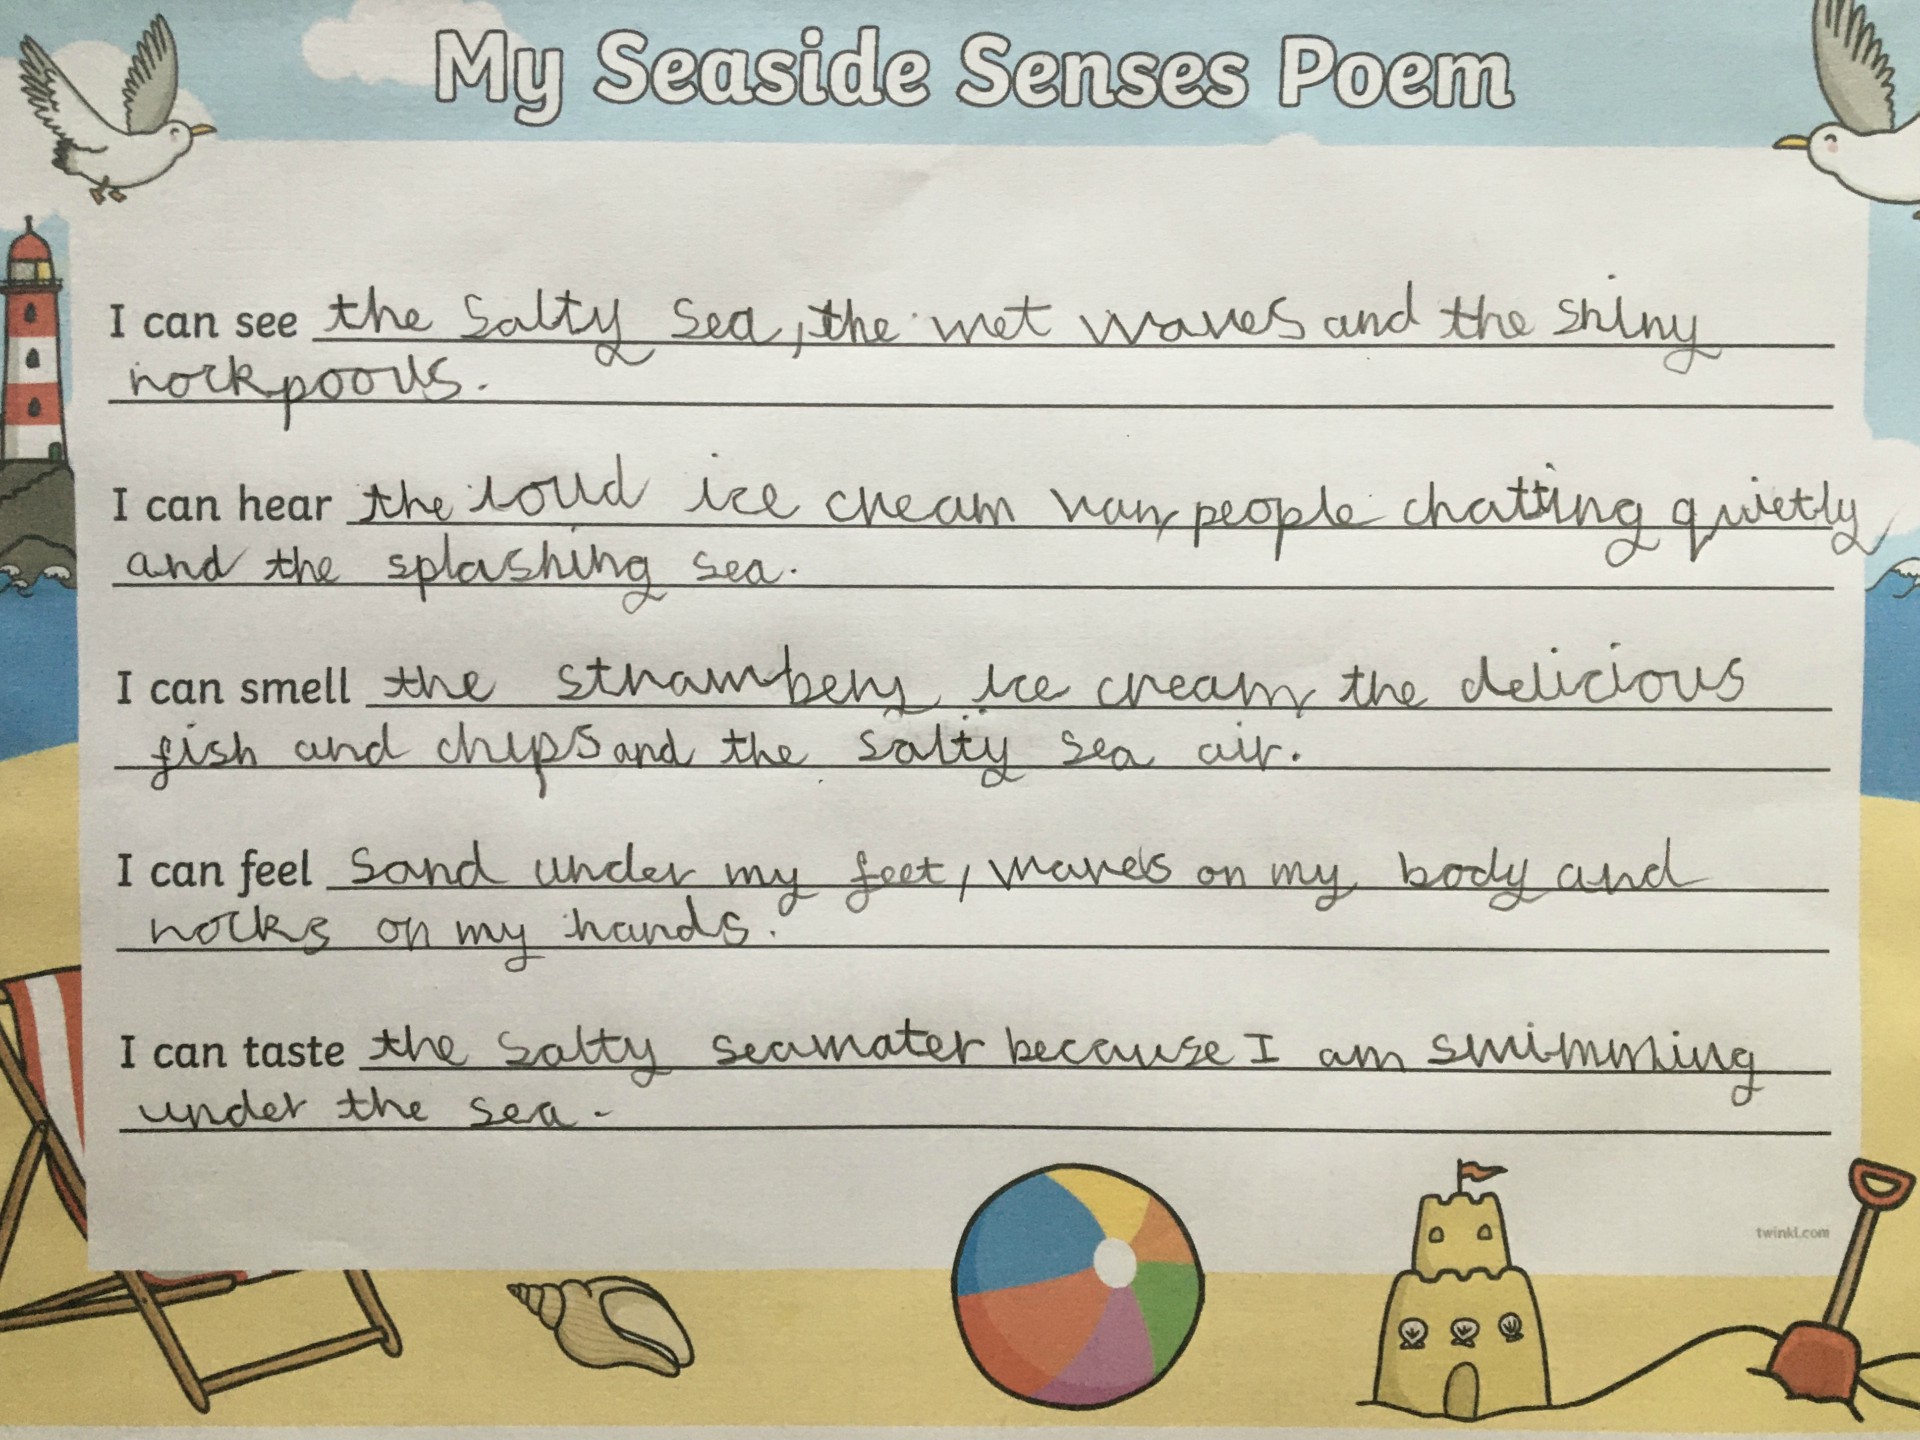 My Seaside Senses Poem
I can see the salty sea, the wet waves and the shiny
rockpools.
I can hear the loud ice cream van, people chatting quietly
and the splashing sea.
I can smell the strawbery ice cream, the delicious
fish and chips and the salty sea air.
I can feel sand under my feet, waves on my body and
rocks on my hands.
I can taste the salty seawater because I am swimming
under the sea.
twinkl.com